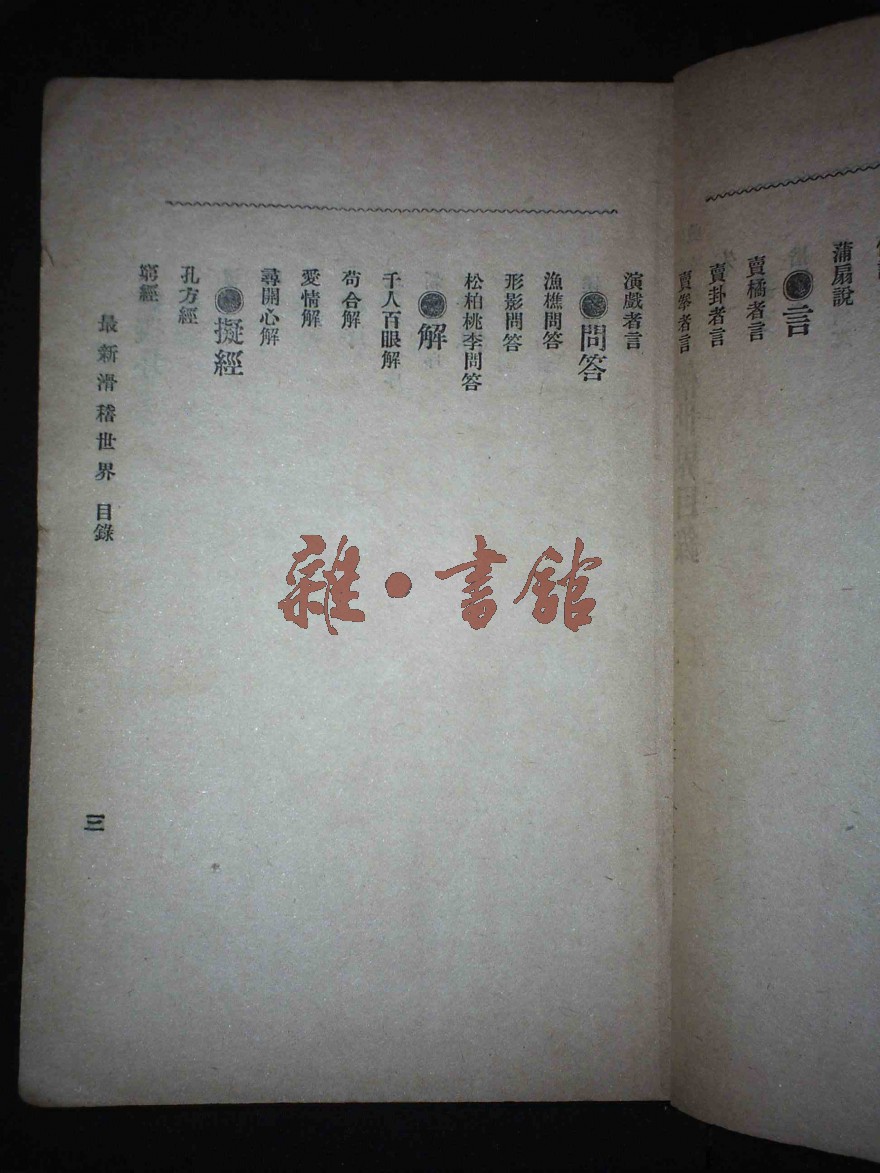 蒲扇說
●言
賣橘者言
賣卦者言
演戲者言
●問答
漁樵問答
形影問答
松柏桃李問答
●解
千人百眼解
苟合解
愛情解
尋開心解
●擬經
孔方經
窮經
最新滑稽世界 目錄
三
雜・書館